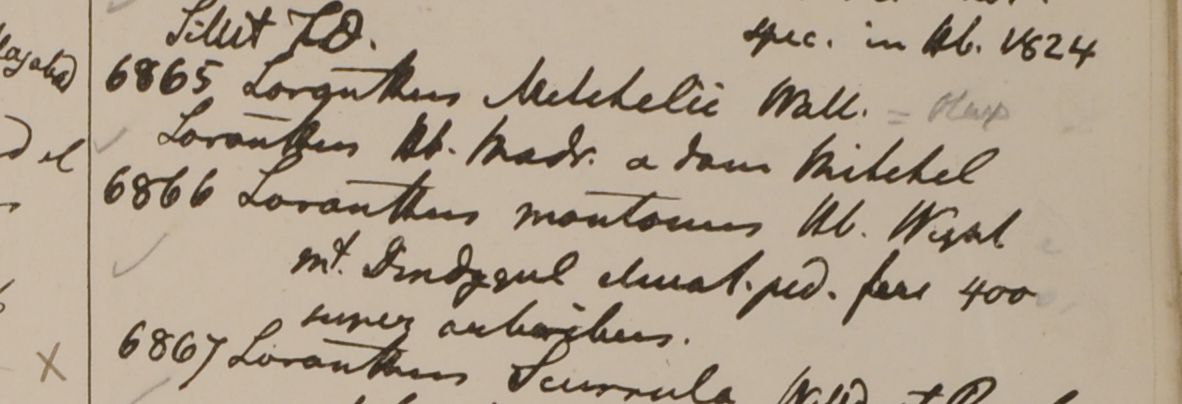 Sillet F.D.
spec. in Hb. 1824
6865 Loranthus Mitchelii Wall.
Loranthus Hb. Madr. a dom Mitchel
6866 Loranthus montanus Hb. Wight
mt. Dindygul elevat. ped. fere 400
super arboribus.
6867 Loranthus Scurrula Willd et